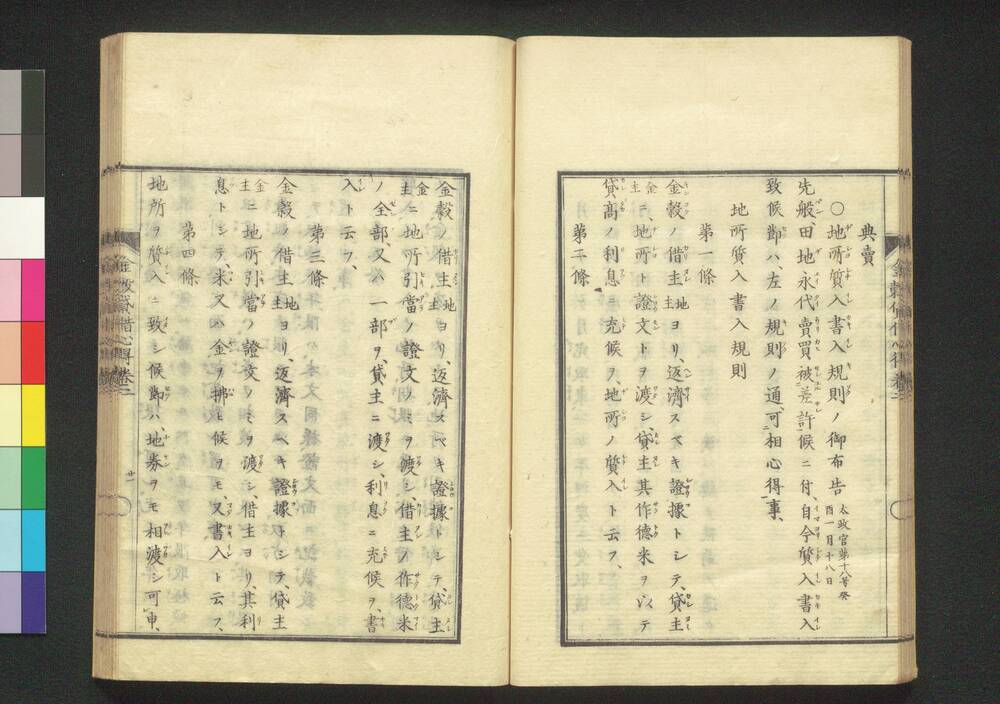 典賣
○地所質入書入規則ノ御布告 太政官第十八号癸
酉一月十八日
先般田地永代賣買被差許候ニ付、自今質入書入
致候節ハ、左ノ規則ノ通、可相心得事、
地所質入書入規則
第一條
金穀ノ借主地主ヨリ、返濟スベキ證據トシテ、貸主
金主ニ、地所ト證文トヲ渡シ、貸主其作德米ヲ以テ
貸高ノ利息ニ充候ヲ、地所ノ質入ト云フ、
第二條
金穀ノ借主地主ヨリ、返濟スベキ證據トシテ、貸主
金主ニ地所引當ノ證文ノミヲ渡シ、借主ノ作德米
ノ全部、又ハ一部ヲ、貸主ニ渡シ、利息ニ充候ヲ、書
入ト云フ、
第三條
金穀ノ借主地主ヨリ、返濟スベキ證據トシテ、貸主
金主ニ地所引當ノ證文ノミヲ渡シ、借主ヨリ、其利
息トシテ米又ハ金ヲ拂ヒ候ヲモ、又書入ト云フ、
第四條
地所ヲ質入ニ致シ候節ハ、地券ヲモ相渡シ可申、
金穀貸借心得 卷二
廿一